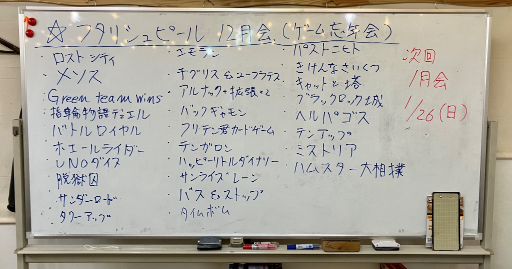 ☆ フタリシュピール 12月会 (ゲーム忘年会)
・ロストシティ
・メソス
・Green team wins
・指輪物語デュエル
・バトルロイヤル
・ホエールライダー
・UNOダイス
・脱獄囚
・サンダーロード
・タワーアップ
・エモラン
・チグリス&ユーフラテス
・アルナック+拡張×2
・バックギャモン
・クリテン君カードゲーム
・テンガロン
・ハッピーリトルダイナリー
・サンライズレーン
・バス&ストップ
・タイムボム
・パストニヒト
・きけんなさいくつ
・キャットと塔
・ブラックロック城
・ヘルパゴス
・テンアップ
・ミストリア
・ハムスター大相撲
次回
1月会
1/26(日)